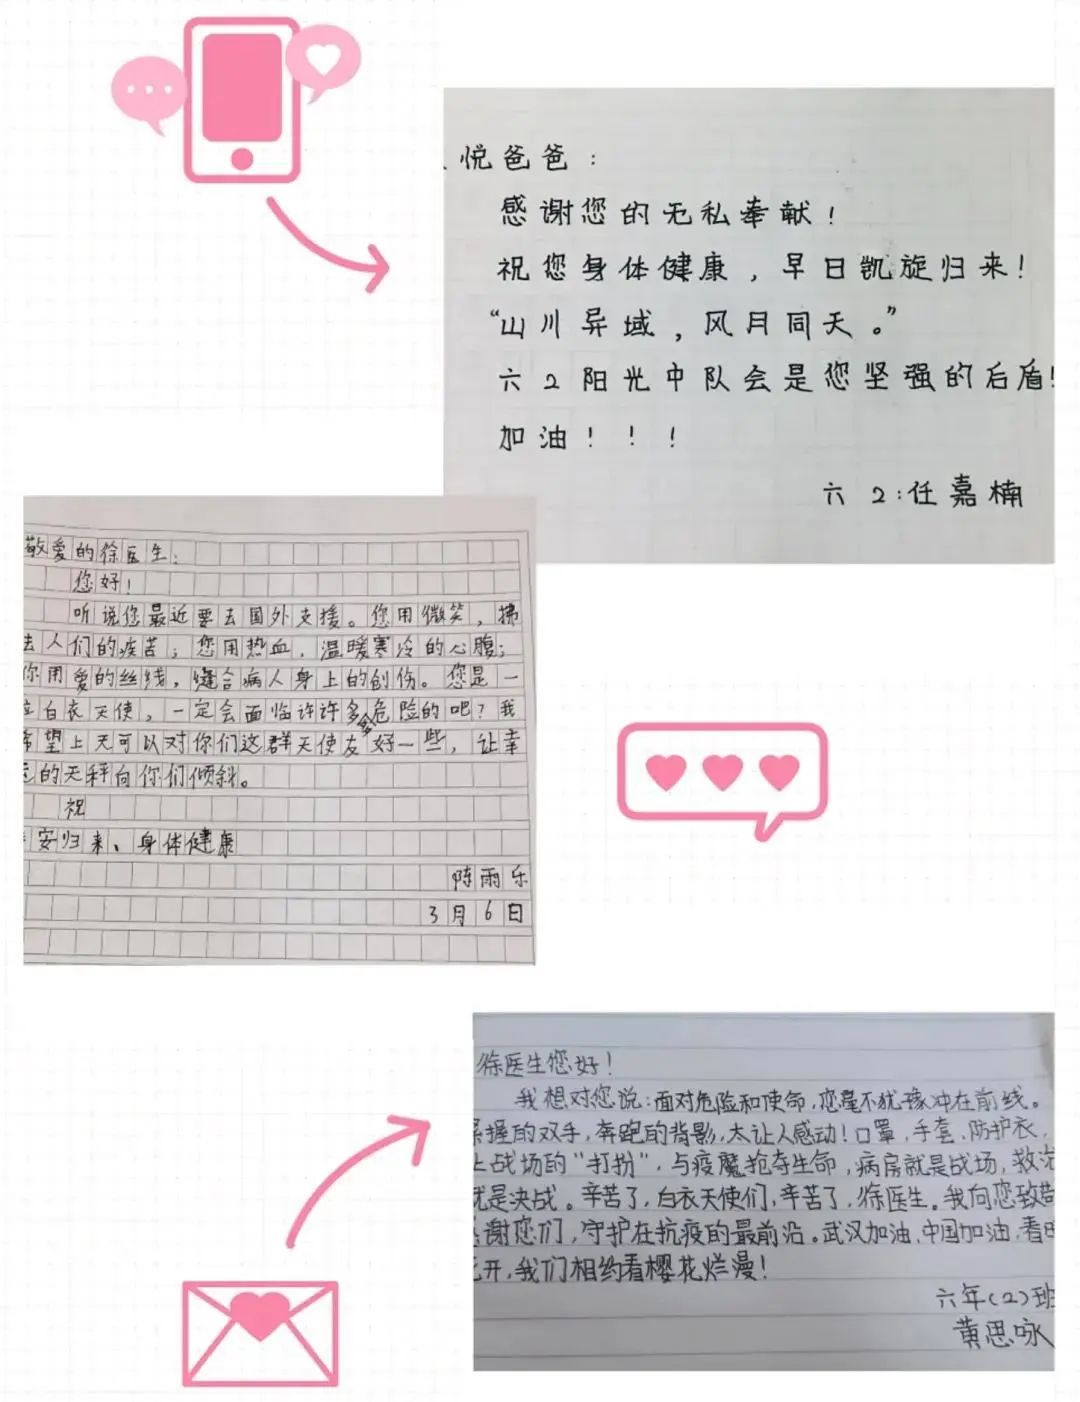 悦爸爸：
感谢您的无私奉献！
祝您身体健康，早日凯旋归来！
“山川异域，风月同天。”
六2阳光中队会是您坚强的后盾！
加油！！！
六2：任嘉楠
敬爱的徐医生：
您好！
听说您最近要去国外支援。您用微笑，拂
去人们的疾苦；您用热血，温暖寒冷的心腹；
你用爱的丝线，缝合病人身上的创伤。您是一
位白衣天使，一定会面临许许多多危险的吧？我
希望上天可以对你们这群天使友好一些，让幸
运的天秤向你们倾斜。
祝
安归来、身体健康
陈雨乐
3月6日
徐医生您好！
我想对您说：面对危险和使命，您毫不犹豫冲在前线。
紧握的双手，奔跑的背影，太让人感动！口罩，手套、防护衣，
上战场的“打扮”，与疫魔抢夺生命，病房就是战场，救治
就是决战。辛苦了，白衣天使们，辛苦了，徐医生。我向您致敬
谢您们，守护在抗疫的最前沿。武汉加油，中国加油，春暖
花开，我们相约看樱花烂漫！
六年（2）班
黄思咏